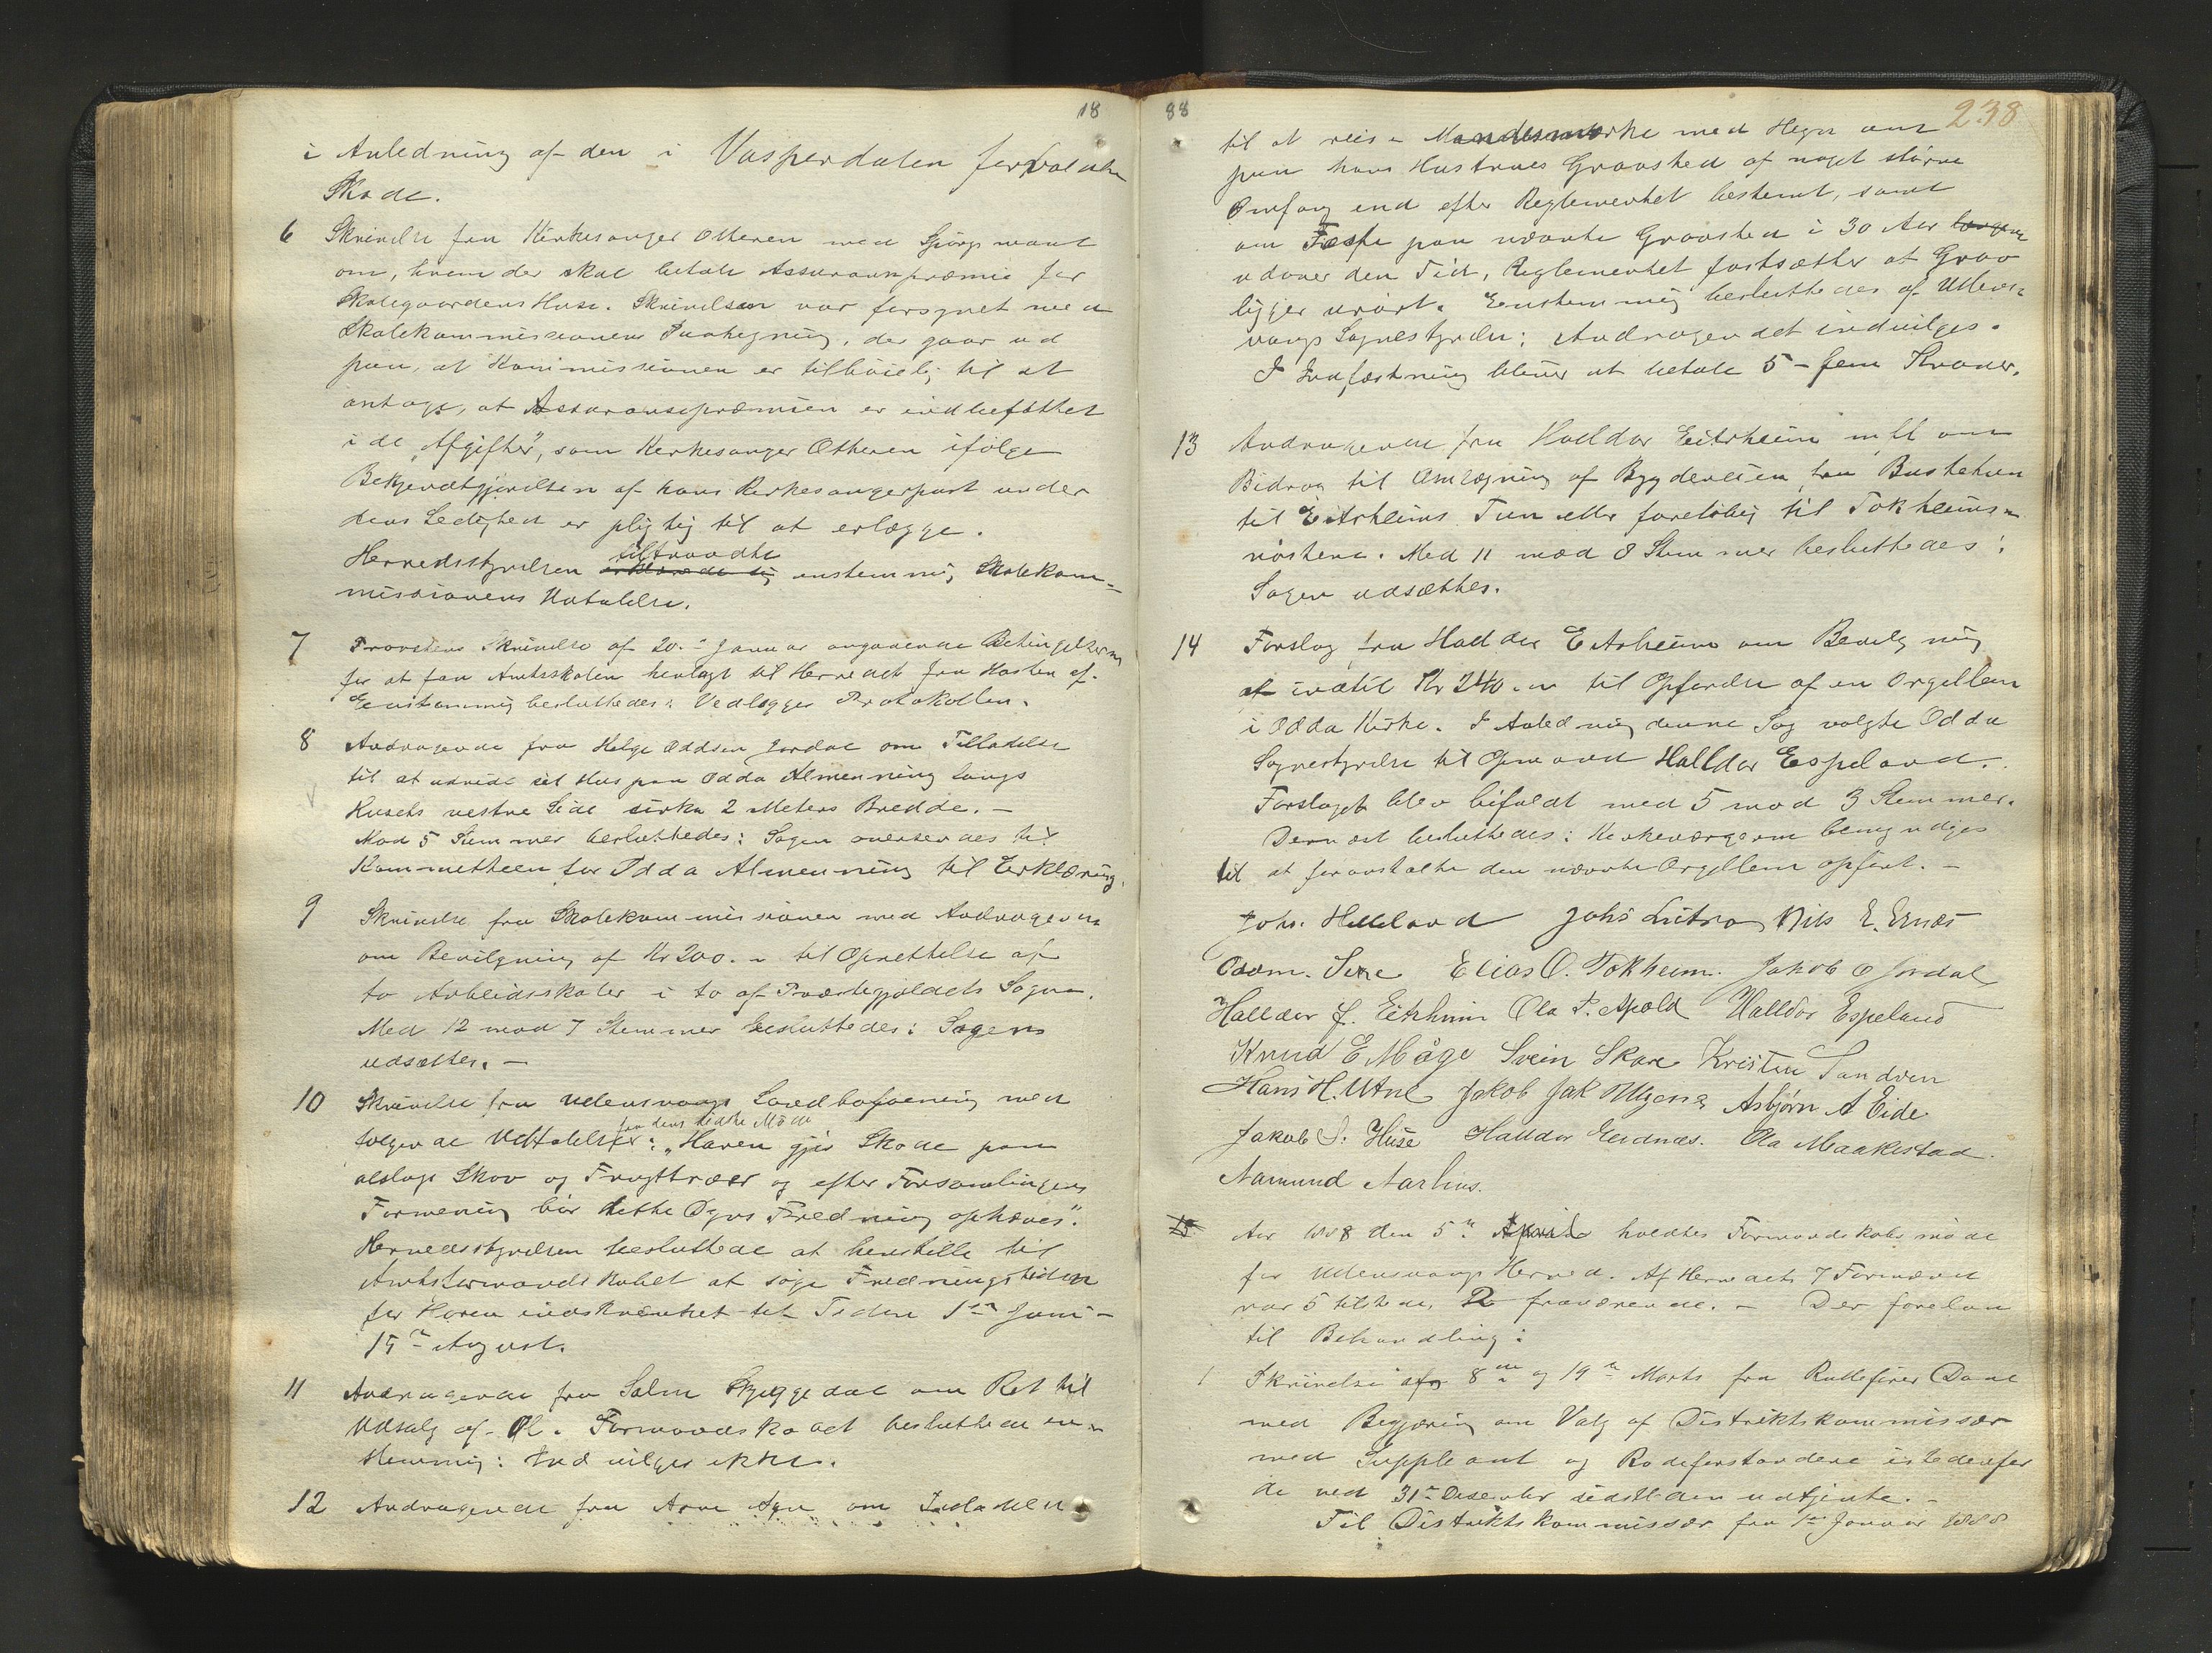 18
i Anledning af den i Vasperdalen forvoldte
Skade.
6 Skrivelse fra Kirkesanger Otheren med Spörgsmaal
om, hvem der skal betale Assurancepræmie for
Skolegaardens Huse. Skrivelsen var forsynet med
Skolekommissionens Paategning, der gaar ud
paa, at Kommissionen er tilböielig til at
antage, at Assurancepræmien er indbefattet
i de "Afgifter", som Kirkesanger Otheren ifölge
Bekjendtgjörelsen af hans Kirkesangerpost under
dens Ledighed er pligtig til at erlægge.
Herredsstyrelsen tiltraadte enstemmig Skolekom-
missionens Udtalelse.
7 Provstens Skrivelse af 20de Januar angaaende Betingelserne
for at faa Amtsskolen henlagt til Herredet fra Hosten af.
Eenstemmig besluttedes: Vedlægges Protokollen.
8 Andragende fra Helge Oddsen Jordal om Tilladelse
til at udvide sit Hus paa Odda Almenning langs
Husets vestre Side cirka 2 Meters Bredde. —
Mod 5 Stemmer besluttedes: Sagen oversendes til
Kommitteen for Odda Almenning til Erklæring.
9 Skrivelse fra Skolekommissionen med Andragende
om Bevilgning af Kr 200.- til Oprettelse af
to Arbeidsskoler i to af Præstegjeldets Sogne.
Med 12 mod 7 Stemmer besluttedes: Sagens
udsættes. —
10 Skrivelse fra Udensvangs Landboforening med
fra dens sidste Möde
fölgende Udtalelser: "Haren gjör Skade paa
alslags Skov og Frugttræer og efter Forsamlingens
Formening bör dette Dyrs Fredning ophæves".
Herredsstyrelsen besluttede at henstille til
Amtsformandskabet at söge Fredningstiden
for Haren indskrænket til Tiden 1ste Juni -
15de August.
11 Andragende fra Salm Skjeggedal om Ret til
Udsalg af Öl. Formandskabet besluttede en-
stemmig: Indvilges ikke.
12 Andragende fra Arne Aga om Tilladelse
88 238
til at reise Mindesmærke med Hegn om
paa hans Hustrues Gravsted af noget större
Omfang end efter Reglementet bestemt, samt
om Fæste paa nævnte Gravsted i 30 Aar længere
udover den Tid, Reglementet fastsætter at Grav
ligger urört. Enstemmig besluttedes af Udens-
vangs Sognestyrelse: Andragendet indvilges.
I Indfæstning bliver at betale 5 - fem Kroner.
13 Andragende fra Halldor Eitrheim m fl om
Bidrag til Omlægning af Bygdeveien fra Bustetun
til Eitrheims Tun eller foreløbig til Tokheims-
nöstene. Med 11 mod 8 Stemmer besluttedes:
Sagen udsættes.
14 Forslag fra Halldor Eitrheim om Bevilgning
af indtil Kr 240.- til Opförelse af en Orgellem
i Odda Kirke. I Anledning denne Sag valgte Odda
Sognestyrelse til Ormand Halldor Espeland.
Forslaget blev bifaldt med 5 mod 3 Stemmer.
Dernæst besluttedes: Kirkeværgerne bemyndiges
til at foranstalte den nævnte Orgellem opfört. —
Johs. Helleland Johs Lutro Nils E. Ernæs
Oddm. Sexe Elias O. Tokheim. Jakob O Jordal
Halldor J. Eitrheim Ola P. Apold Halldor Espeland
Knud E Måge Svein Skare Kristen Sandven
Hans H. Utne Jakob Jak Asbjørn A Eide
Jakob S. Huse Halldor Eidnæs. Ola Maakestad.
Aamund Aarhus.
15 Aar 1888 den 5te April holdtes Formandskabsmöde
for Udensvangs Herred. Af Herredets 7 Formænd
var 5 tilstede, 2 fraværende. — Der forelaa
til Behandling:
1 Skrivelse af 8de og 19de Marts fra Rulleförer Dahl
med Begjæring om Valg af Distriktskommissær
med Suppleant og Rodeforstandere istedenfor
de ved 31te Desember sidstleden udtjente. -
Til Distriktskommissær fra 1ste Januar 1888